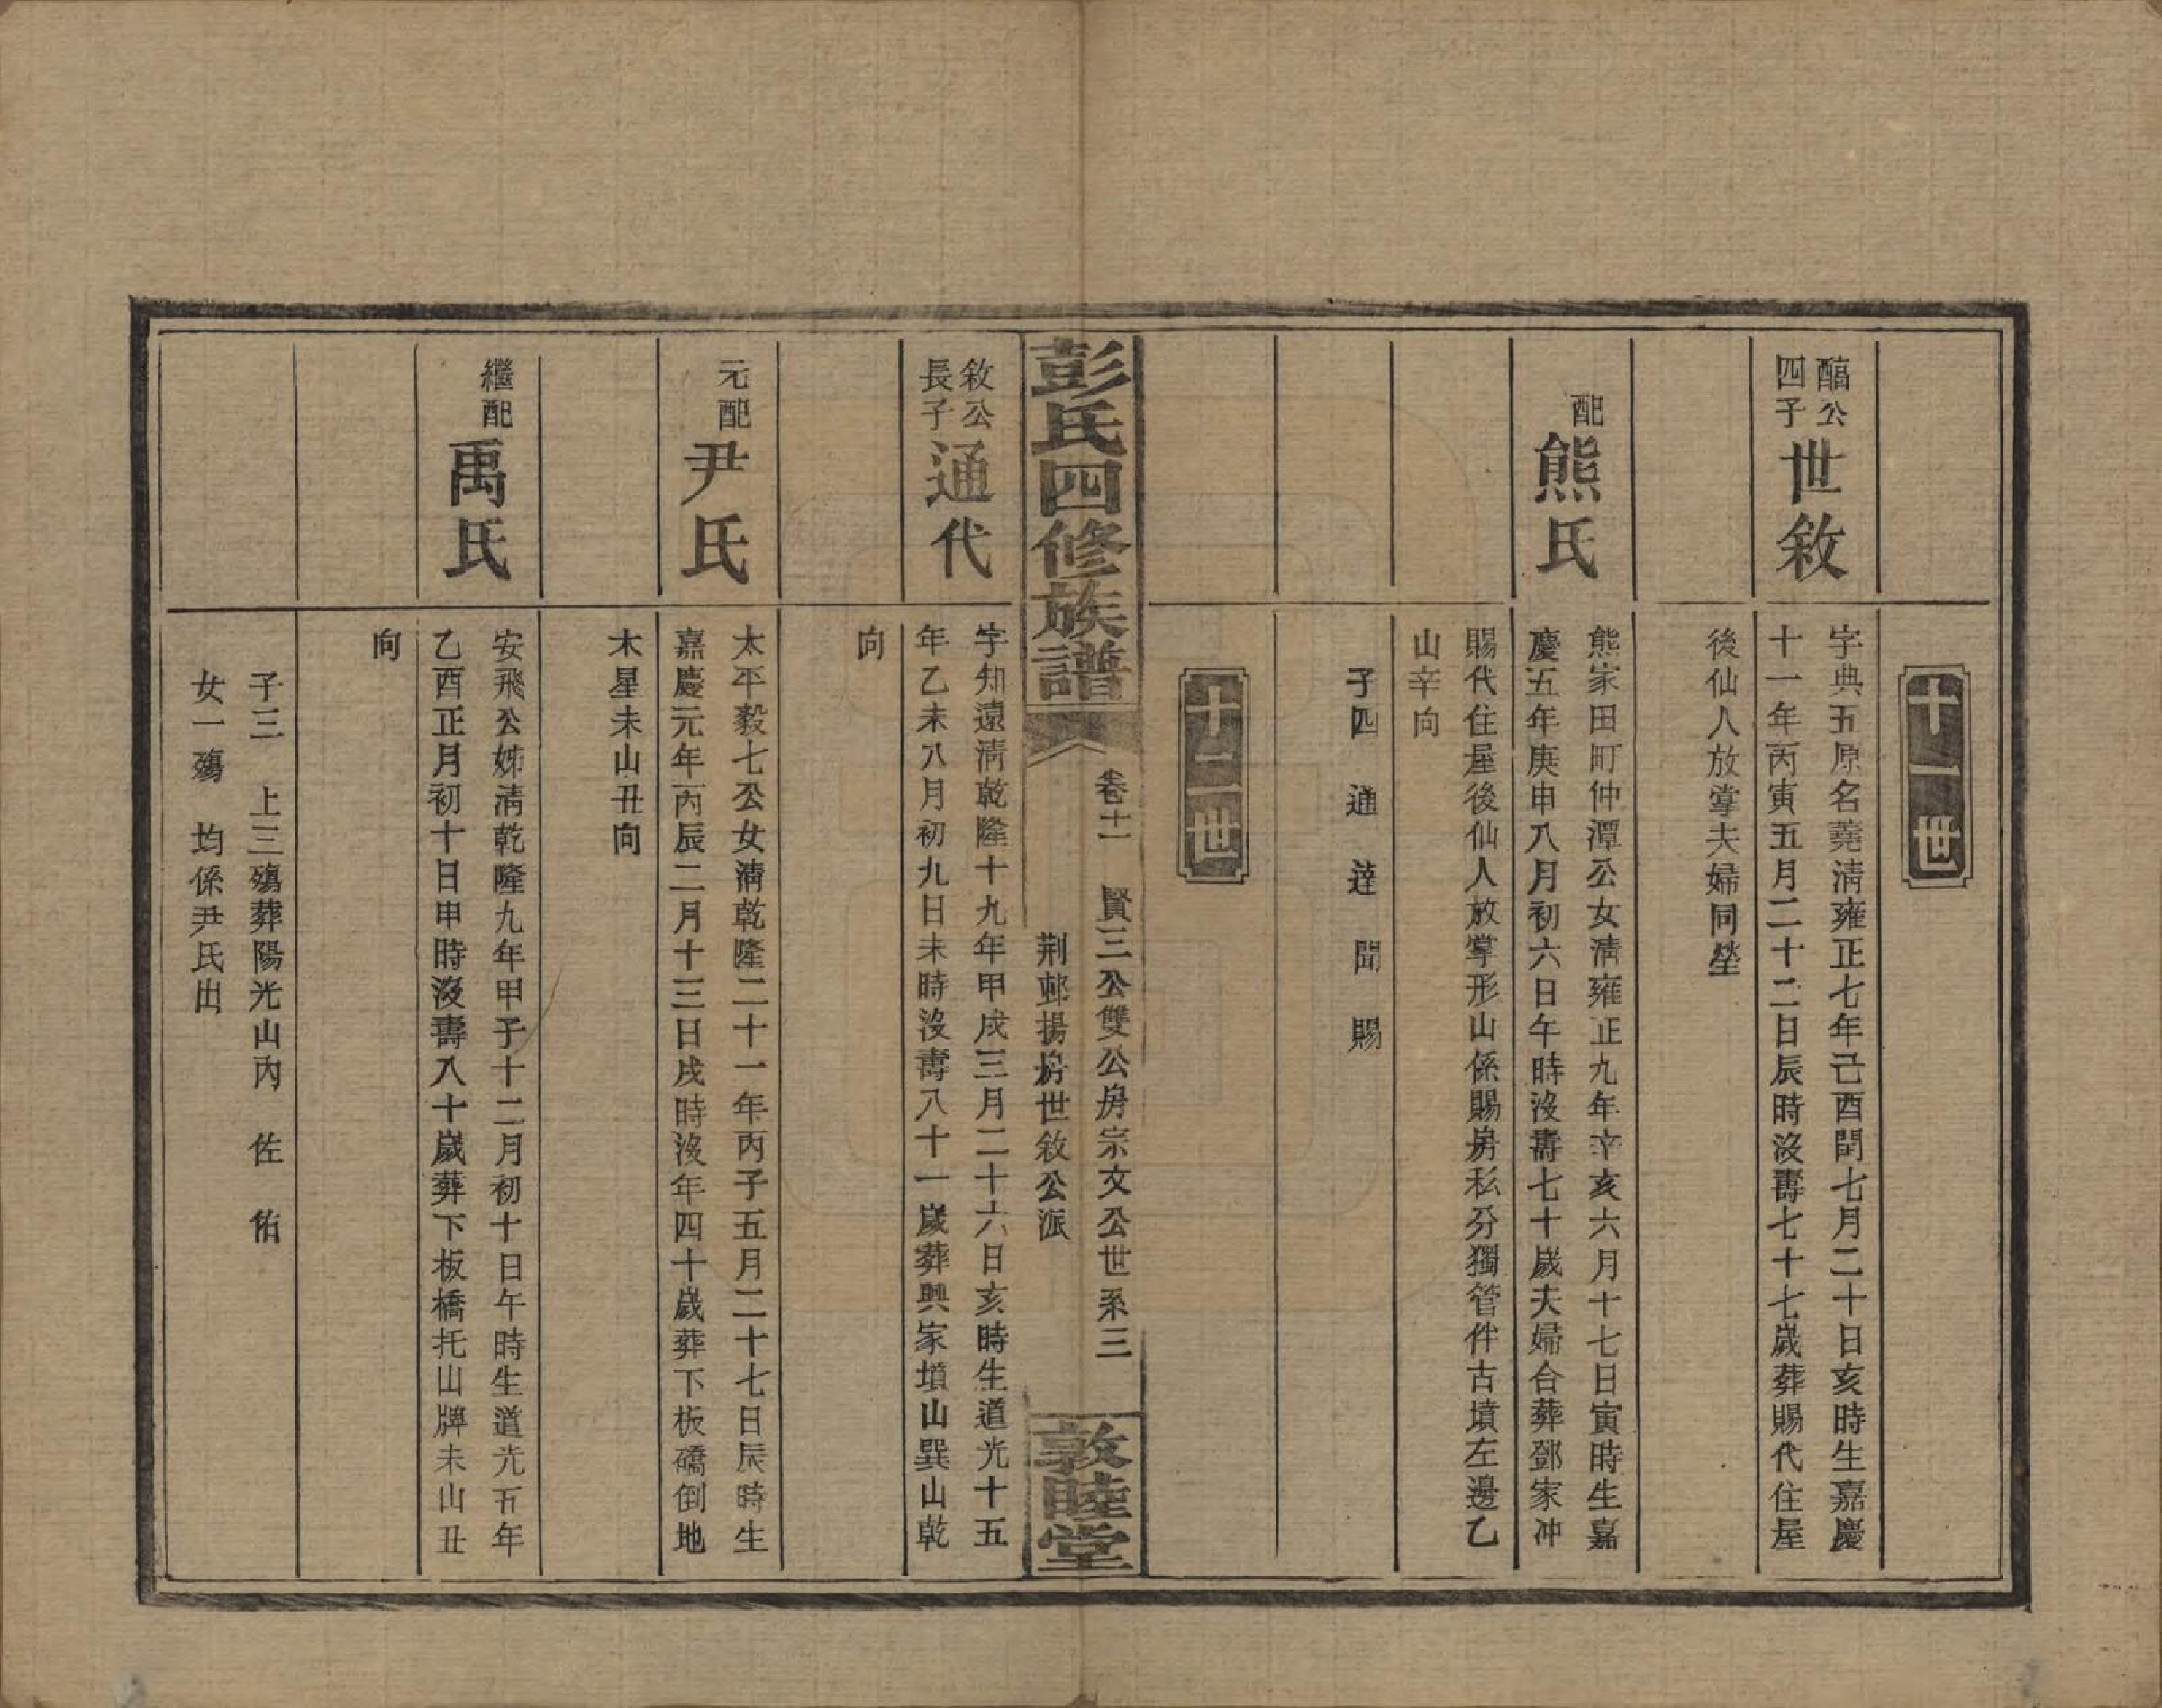 十一世
醽公
四子
世敘
字典五原名薨清雍正七年己酉閏七月二十日亥時生嘉慶
十一年丙寅五月二十二日辰時沒壽七十七歲葬賜代住屋
後仙人放掌夫婦同塋
配
熊氏
熊家田町仲潭公女清雍正九年辛亥六月十七日寅時生嘉
慶五年庚申八月初六日午時沒壽七十歲夫婦合葬鄧家冲
賜代住屋後仙人放掌形山係賜房私分獨管件古墳左邊乙
山辛向
子四 通 達 聞 賜
十二世
彭氏四修族譜
卷十一 賢三公雙公房宗文公世系三
荆邨揚房世敘公派
敦睦堂
敘公
長子
通代
字知遠清乾隆十九年甲戌三月二十六日亥時生道光十五
年乙未八月初九日未時沒壽八十一歲葬興家墳山巽山乾
向
元配
尹氏
太平毅七公女清乾隆二十一年丙子五月二十七日辰時生
嘉慶元年丙辰二月十三日戌時沒年四十歲葬下板礄倒地
木星未山丑向
繼配
禹氏
安飛公姊清乾隆九年甲子十二月初十日午時生道光五年
乙酉正月初十日申時沒壽八十歲葬下板橋托山牌未山丑
向
子三 上三殤葬陽光山內 佐 佑
女一殤 均係尹氏出